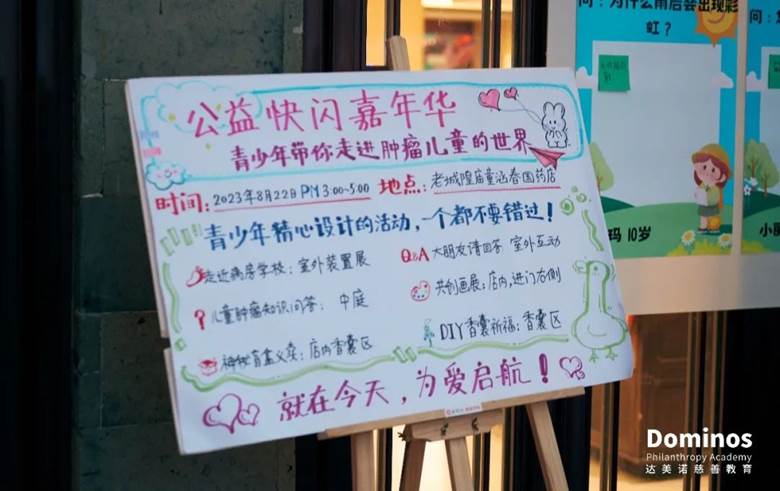 公益快闪嘉年华
青少年带你走进肿瘤儿童的世界
时间：2023年8月22日 PM 3:00~5:00 地点：老城隍庙童涵春国药店
青少年精心设计的活动，一个都不要错过！
走近病房学校：室外装置展
Q&A 大朋友请回答 室外互动
儿童肿瘤知识问答：中庭
共创画展：店内，进门右侧
神秘盲盒义卖：店内香囊区
DIY香囊祈福：香囊区
就在今天，为爱启航！
问：为什么雨后会出现彩虹？
问：
玛 10岁
小
Dominos
Philanthropy Academy
达美诺慈善教育